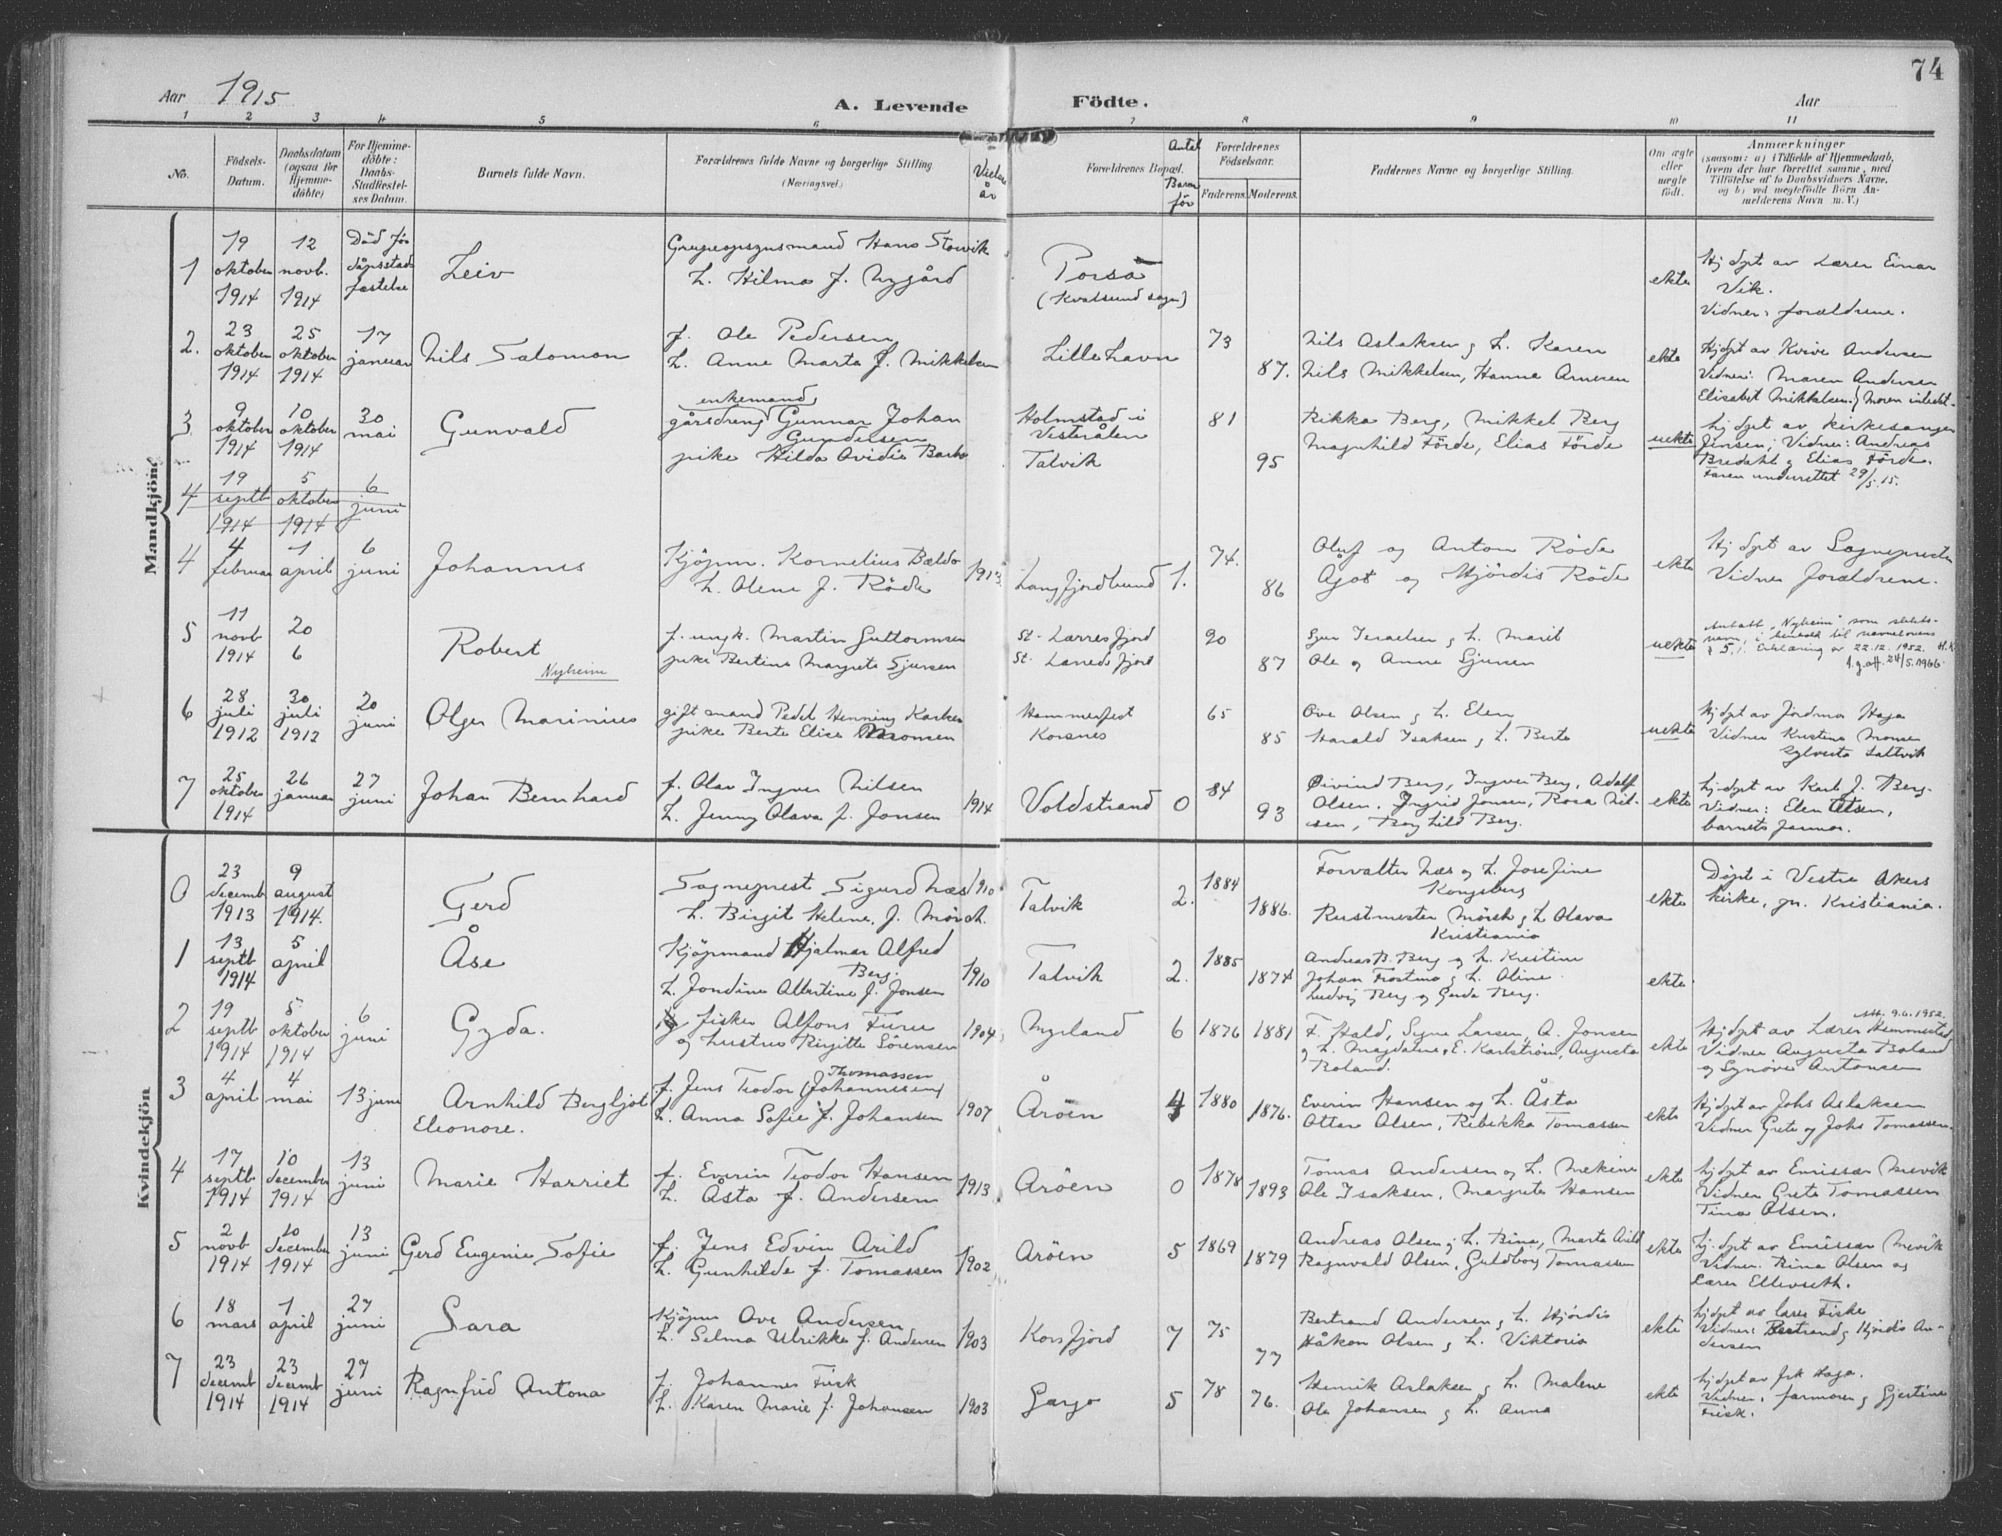 74
Aar 1915
A. Levende Födte.
Aar
1 2 3 4 5 6 7 8 9 10 11
No.
Födsels-Datum.
Daabsdatum (ogsaa for Hjemmedöbte)
For Hjemmedöbte: Daabs-Stadfæstelses Datum.
Barnets fulde Navn.
Forældrenes fulde Navne og borgerlige Stilling (Næringsvei.)
Vielses år
Forældrenes Bopæl.
Antal Barn før
Forældrenes Födselsaar.
Faderens. Moderens.
Faddernes Navne og borgerlige Stilling.
Om ægte eller uægte født.
Anmærkninger
(saasom: a) i Tilfælde af Hjemmedaab, hvem der har forrettet samme, med Tilföielse af to Daabsvidners Navne, og b) ved uegtefödte Börn Anmelderens Navn m. V.)
Mandkjön
1
19 oktober 1914
12 novb. 1914
Död før dåpsstadfæstelse
Leiv
Hans Storvik
h. Hilma f. Nygård
Porsa
(Kvalsund sogn)
ekte
Hj døpt av Lærer Einar Vik.
Vidner: forældrene.
2.
23 oktober 1914
25 oktober 1914
17 januar
Nils Salomon
f. Ole Pedersen
h. Anne Marta f. Mikkelsen
Lillehavn
73
87.
Nils Aslaksen og h. Karen
Nils Mikkelsen, Hanna Arnesen
ekte
Hjdøpt av Kvive Andersen
Vidner: Maren Andersen
Elisabet Mikkelsen.
3
9 oktober 1914
10 oktober 1914
30 mai
Gunvald
enkemand
gårsdreng Gunnar Johan Gundersen
pike Hilda Ovidie Barbo
Holmstad i Vesterålen
Talvik
81
95
Rikka Berg, Mikkel Berg
Magnhild Förde, Elias Förde
uekte
hjdøpt av kirkesanger Jensen; Vidner: Andreas Bredahl og Elias Förde.
Faren underrettet 29/5.15.
4
19 septb 1914
5 oktober 1914
6 juni
4
4 februar
1 april
6 juni
Johannes
Kjöpm. Kornelius Bældo
h. Olena f. Röde
1913
Langfjordbund
1.
74.
86
Oluf og Anton Röde
Ågot og Hjördis Röde
ekte
Hj døpt av Sognepresten
Vidner forældrene.
5
11 novb 1914
20 6
Robert
Nyheim
f. ungk. Martin Guttormsen
pike Bertine Margrete Sjursen
St. Lerresfjord
St. Leresfjord
90
87
Sjur Israelsen og h. Marit
Ole og Anne Sjursen
uekte
Antatt "Nyheim" som slektsnavn, i henhold til navnelovens § 5, 1. Erklæring av 22.12.1952.
24/5.1966.
6
28 juli 1912
30 juli 1912
20 juni
Olger Marinius
gift mand Peder Henning Karlsen
pike Berte Elise Monsen
Hammerfest
Korsnes
65
85
Ove Olsen og h. Elen
Harald Isaksen og h. Berte
uekte
Hjdøpt av Jordmor Haga
Vidner Kristine Monsen
Sylveste Saltvik
7
25 oktober 1914
26 januar
27 juni
Johan Bernhard
f. Olav Ingver Nilsen
h. Jenny Olava f. Jonsen
1914
Voldstrand
0
84
93
Øivind Berg, Ingver Berg, Adolf Olsen, Ingrid Jonsen, Rosa Nilsen, Borghild Berg.
ekte
hjdøpt av Karl J. Berg.
Vidner: Elen Olsen, barnets farmor.
Kvindekjön
0
23 decemb 1913
9 august 1914.
Gerd
Sogneprest Sigurd Næs
h. Birgit Helene, f. Mörch.
1910
Talvik
2.
1884
1886.
Forvalter Næs og h. Josefine
Kongsberg
Rustmester Mörch og h. Olava
Kristiania
ekte
Døpt i Vestre Akers kirke, pr. Kristiania.
1
13 septb 1914
5 april
Åse
Kjöpmand Hjalmar Alfred Berg.
h. Jondine Albertine f. Jonsen
1910
Talvik
2.
1885
1874
Andreas B. Berg og h. Kristine
Johan Frostmo og h. Oline
Ludvig Berg og Gerda Berg.
ekte
2
19 septb 1914
5 oktober 1914
6 juni
Gyda.
fisker Alfons Furu
og hustru Birgitte Sörensen
1904
Nyeland
6
1876
1881
F. Hald, Signe Larsen, A. Jonsen
og h. Magdalene, E. Karlström, Augusta Boland.
ekte
9.6.1952.
Hjdøpt av Lærer Hemmestad
Vidner Augusta Boland
og Synöve Antonsen
3
4 april
4 mai
13 juni
Arnhild Bergljot Eleonore.
Thomassen
f. Jens Teodor (Johannessen)
h. Anna Sofie f. Johansen
1907
Åröen
4
1880
1876.
Everin Hansen og h. Åsta
Ottar Olsen, Rebekka Tomassen
ekte
Hjdøpt av Johs Aslaksen
Vidner Grete og Johs Tomassen.
4
17 septb 1914
10 december 1914
13 juni
Marie Harriet
f. Everin Teodor Hansen
h. Åsta f. Andersen
1913
Aröen
0
1878
1893
Tomas Andersen og h. Mekine
Ole Isaksen, Margrete Hansen
ekte
hjdøpt av Emissær Mevik
Vidner Grete Tomassen
Tina Olsen.
5
2 novb 1914
10 december 1914
13 juni
Gerd Eugenie Sofie
f. Jens Edvin Arild
h. Gunhilde f. Tomassen
1902
Aröen
5
1869
1879
Andreas Olsen og h. Bina, Marta Arild
Ragnvald Olsen, Guldborg Tomassen
ekte
hj. døpt av Emissær Mevik
Vidner. Rina Olsen og
Lærer Ellevseth.
6
18 mars
1 april
27 juni
Sara
Kjöpm Ove Andersen
h. Selma Ulrikke f. Andersen
1903
Korsfjord
7
75
77
Bertrand Andersen og h. Hjördis
Håkon Olsen og h. Viktoria
ekte
hjdøpt av lærer Fiske
Vidner: Bertrand og Hjördis Andersen
7
23 decemb 1914
23 decemb 1914
27 juni
Ragnfrid Antona
f. Johannes Fisk
h. Karen Marie f. Johansen
1903
Gargo
5
78
76.
Henrik Aslaksen og h. Malene
Ole Johansen og h. Anna
ekte
hjdøpt av frk Haga.
Vidner: farmoren og Gjertine Fisk.